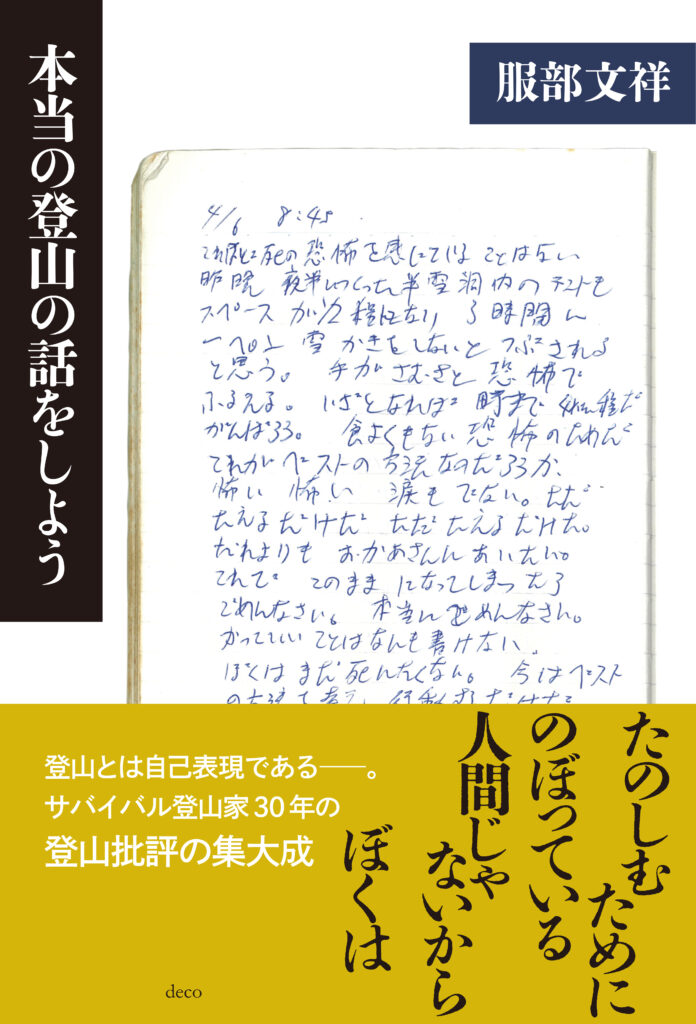 服部文祥
本当の登山の話をしよう
4/6 8:45
これほどに死の恐怖を感じていることはない
昨晩 夜半につくった半雪洞内のテントも
スペースが1/2程になり 3時間に
一ぺん 雪かきをしないと つぶされる
と思う。 手がさむさと恐怖で
ふるえる。 いざとなれば 時まで
がんばろう。 食よくもない 恐怖のためだ
これがベストの方法なのだろうか、
怖い 怖い 涙もでない。ただ
たえるだけだ ただ たえるだけだ。
だれよりも おかあさんに あいたい。
これで このまま になってしまったら
ごめんなさい。 本当にごめんなさい。
かっていいことはなんも書けない。
ぼくはまだ死にたくない。 今はベスト
たのしむ
ために
のぼっている
人間じゃ
ないから
ぼくは
登山とは自己表現である——。
サバイバル登山家30年の
登山批評の集大成
deco